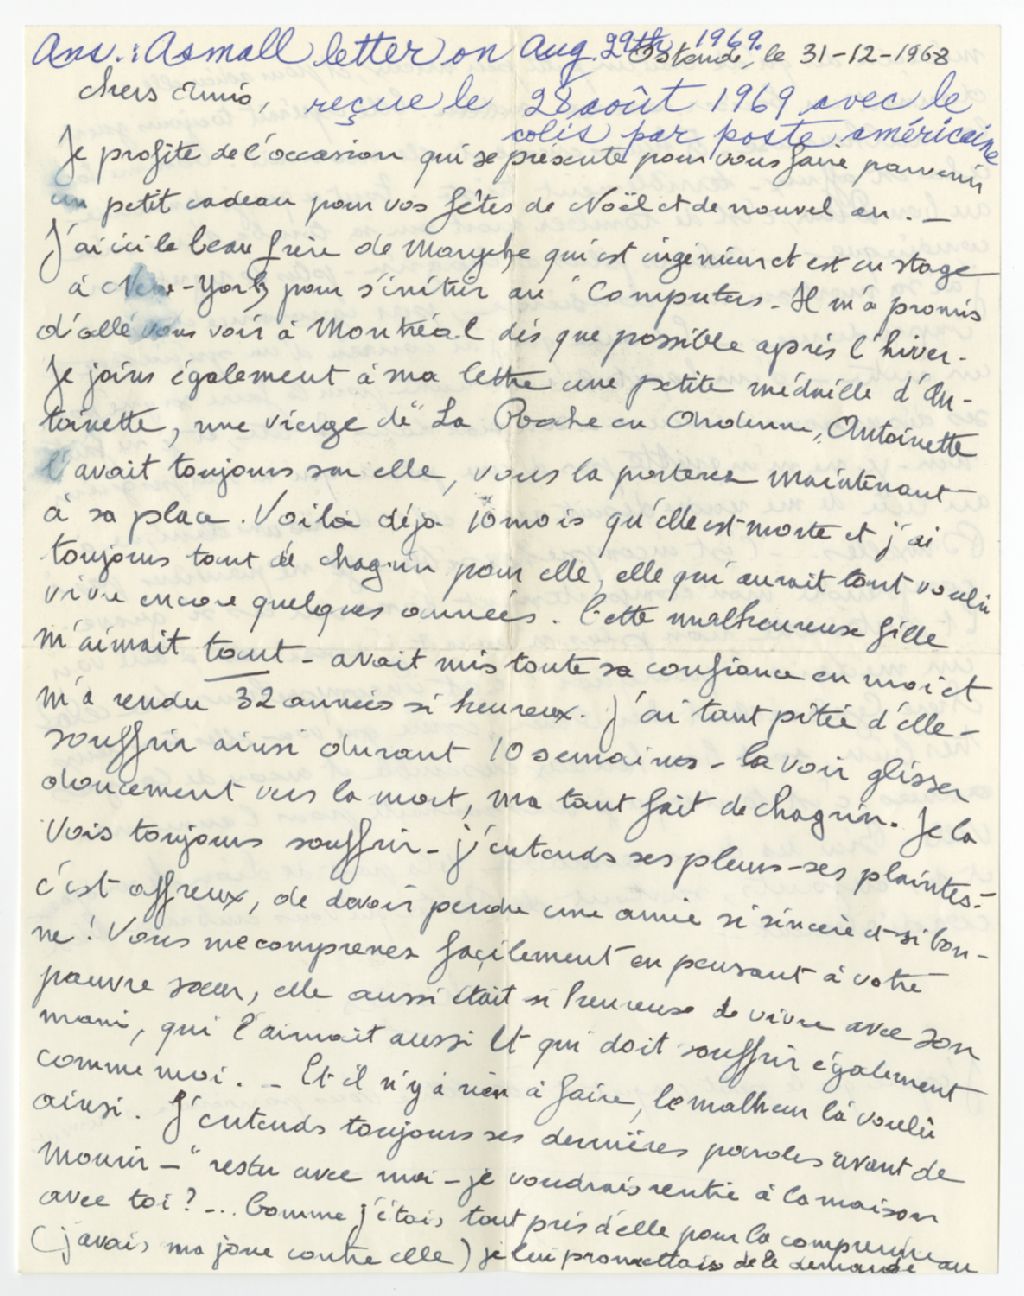 Ans.: A small letter on Aug. 29th, 1969.
Ostende, le 31-12-1968
chers amis,
reçue le 28 août 1969 avec le
colis par poste américaine
Je profite de l'occasion qui se présente pour vous faire parvenir
un petit cadeau pour vos fêtes de Noël et de nouvel an. —
J'ai ici le beau frère de qui est ingénieur et est en stage
à New-York pour s'initier au "Computers - Il m'a promis
d'allé vous voir à Montréal dès que possible après l'hiver.
Je joins également à ma lettre une petite médaille d'An-
toinette, une vierge de "La Roche en Ardenne", Antoinette
l'avait toujours sur elle, vous la porterez maintenant
à sa place. Voilà déjà 10 mois qu'elle est morte et j'ai
toujours tant de chagrin pour elle, elle qui aurait tant voulu
vivre encore quelques années. Cette malheureuse fille
m'aimait tant - avait mis toute sa confiance en moi et
m'a rendu 32 années si heureux. J'ai tant pitié d'elle -
souffrir ainsi durant 10 semaines - la voir glisser
doucement vers la mort, ma tant fait de chagrin. Je la
vois toujours souffrir - j'entends ses pleurs - ses plaintes -
c'est affreux, de devoir perdre une amie si sincère et si bon-
ne! Vous me comprenez facilement en pensant à votre
pauvre sœur, elle aussi était si heureuse de vivre avec son
mari, qui l'aimait aussi et qui doit souffrir également
comme moi. - Et il n'y à rien à faire, le malheur l'à voulu
ainsi. J'entends toujours ses dernières paroles avant de
mourir - "reste avec moi - je voudrais rentré à la maison
avec toi? -... Comme j'étais tout près d'elle pour la comprendre
(j'avais ma joue contre elle) je lui promettais de le demandé au